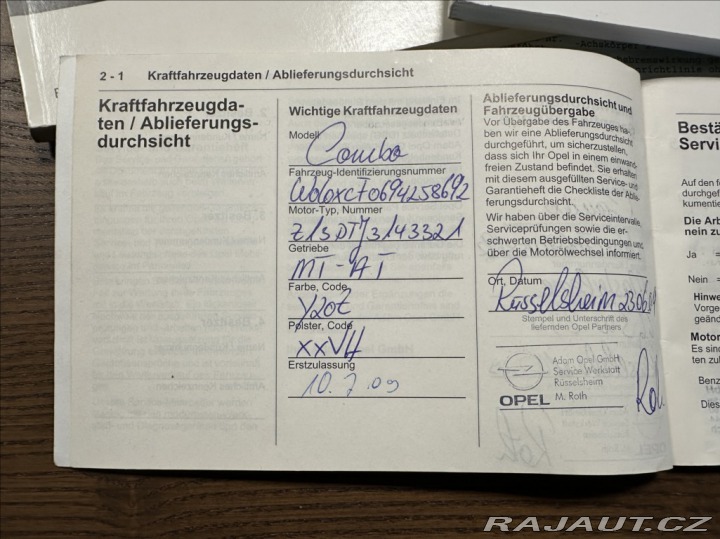 2 - 1 Kraftfahrzeugdaten / Ablieferungsdurchsicht
Kraftfahrzeugda-
ten / Ablieferungs-
durchsicht
Wichtige Kraftfahrzeugdaten
Modell
Combo
Fahrzeug-Identifizierungsnummer
W0L0XCF0694258692
Motor-Typ, Nummer
Z13DTJ 3143321
Getriebe
MT-AT
Farbe, Code
Y20Z
Polster, Code
XXVH
Erstzulassung
10.7.09
Ablieferungsdurchsicht und
Fahrzeugübergabe
Vor Übergabe des Fahrzeuges ha-
ben wir eine Ablieferungsdurchsicht
durchgeführt, um sicherzustellen,
dass sich Ihr Opel in einem einwand-
freien Zustand befindet. Sie erhalten
mit diesem ausgefüllten Service- und
Garantieheft die Checkliste der Ablie-
ferungsdurchsicht.
Wir haben über die Serviceintervalle,
Serviceprüfungen sowie die er-
schwerten Betriebsbedingungen und
über die Motorölwechsel informiert.
Ort, Datum
Rüsselsheim 23.06.09
Stempel und Unterschrift des
liefernden Opel Partners
Adam Opel GmbH
Service Werkstatt
Rüsselsheim
OPEL M. Roth
Bestä
Servi
Auf den f
durchgef
kumentie
Die Arb
nein zu
Ja =
Nein =
Hinwe
Vorge
geänd
Motor
Es sind
ten zul
Benz
Dies
RAJAUT.CZ